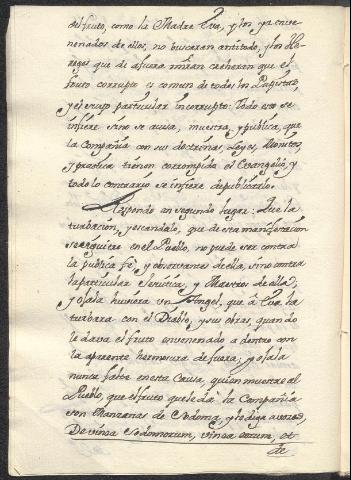 del fruto, como la Madre Eva, y los ya enve-
nenados de ellos, no buscaran antidoto, y los He-
reges que de afuera miran creheran que el
fruto corrupto es comun de todos los
y el es un particular incorrupto: Todo esto se
infiere sino se avisa, muestra, y publica, que
la Compañia con sus doctrinas, Leyes,
y practica tienen corrompido el Evangelio, y
todo lo contrario se infiere de publicarlo.
Respondo en segundo lugar: Que la
turbacion, y escandalo, que de esta manifestacion
se siguiere en el Pueblo, no puede ser contra
la publica fe, y observantes de ella, sino contra
la particular Jesuitica, y Maestros de ella,
y ojala huviera un Angel, que à Eva ha
turbara con el Diablo, y sus obras, quando
le dava el fruto envenenado a dentro con
la aparente hermosura de fuera; y ojala
nunca falte en esta Causa, quien muestre al
Pueblo, que el fruto que le dà la Compañia
son Manzanas de Sodoma, y le diga a vozes,
De vinea Sodomorum, vinea eorum, et
de